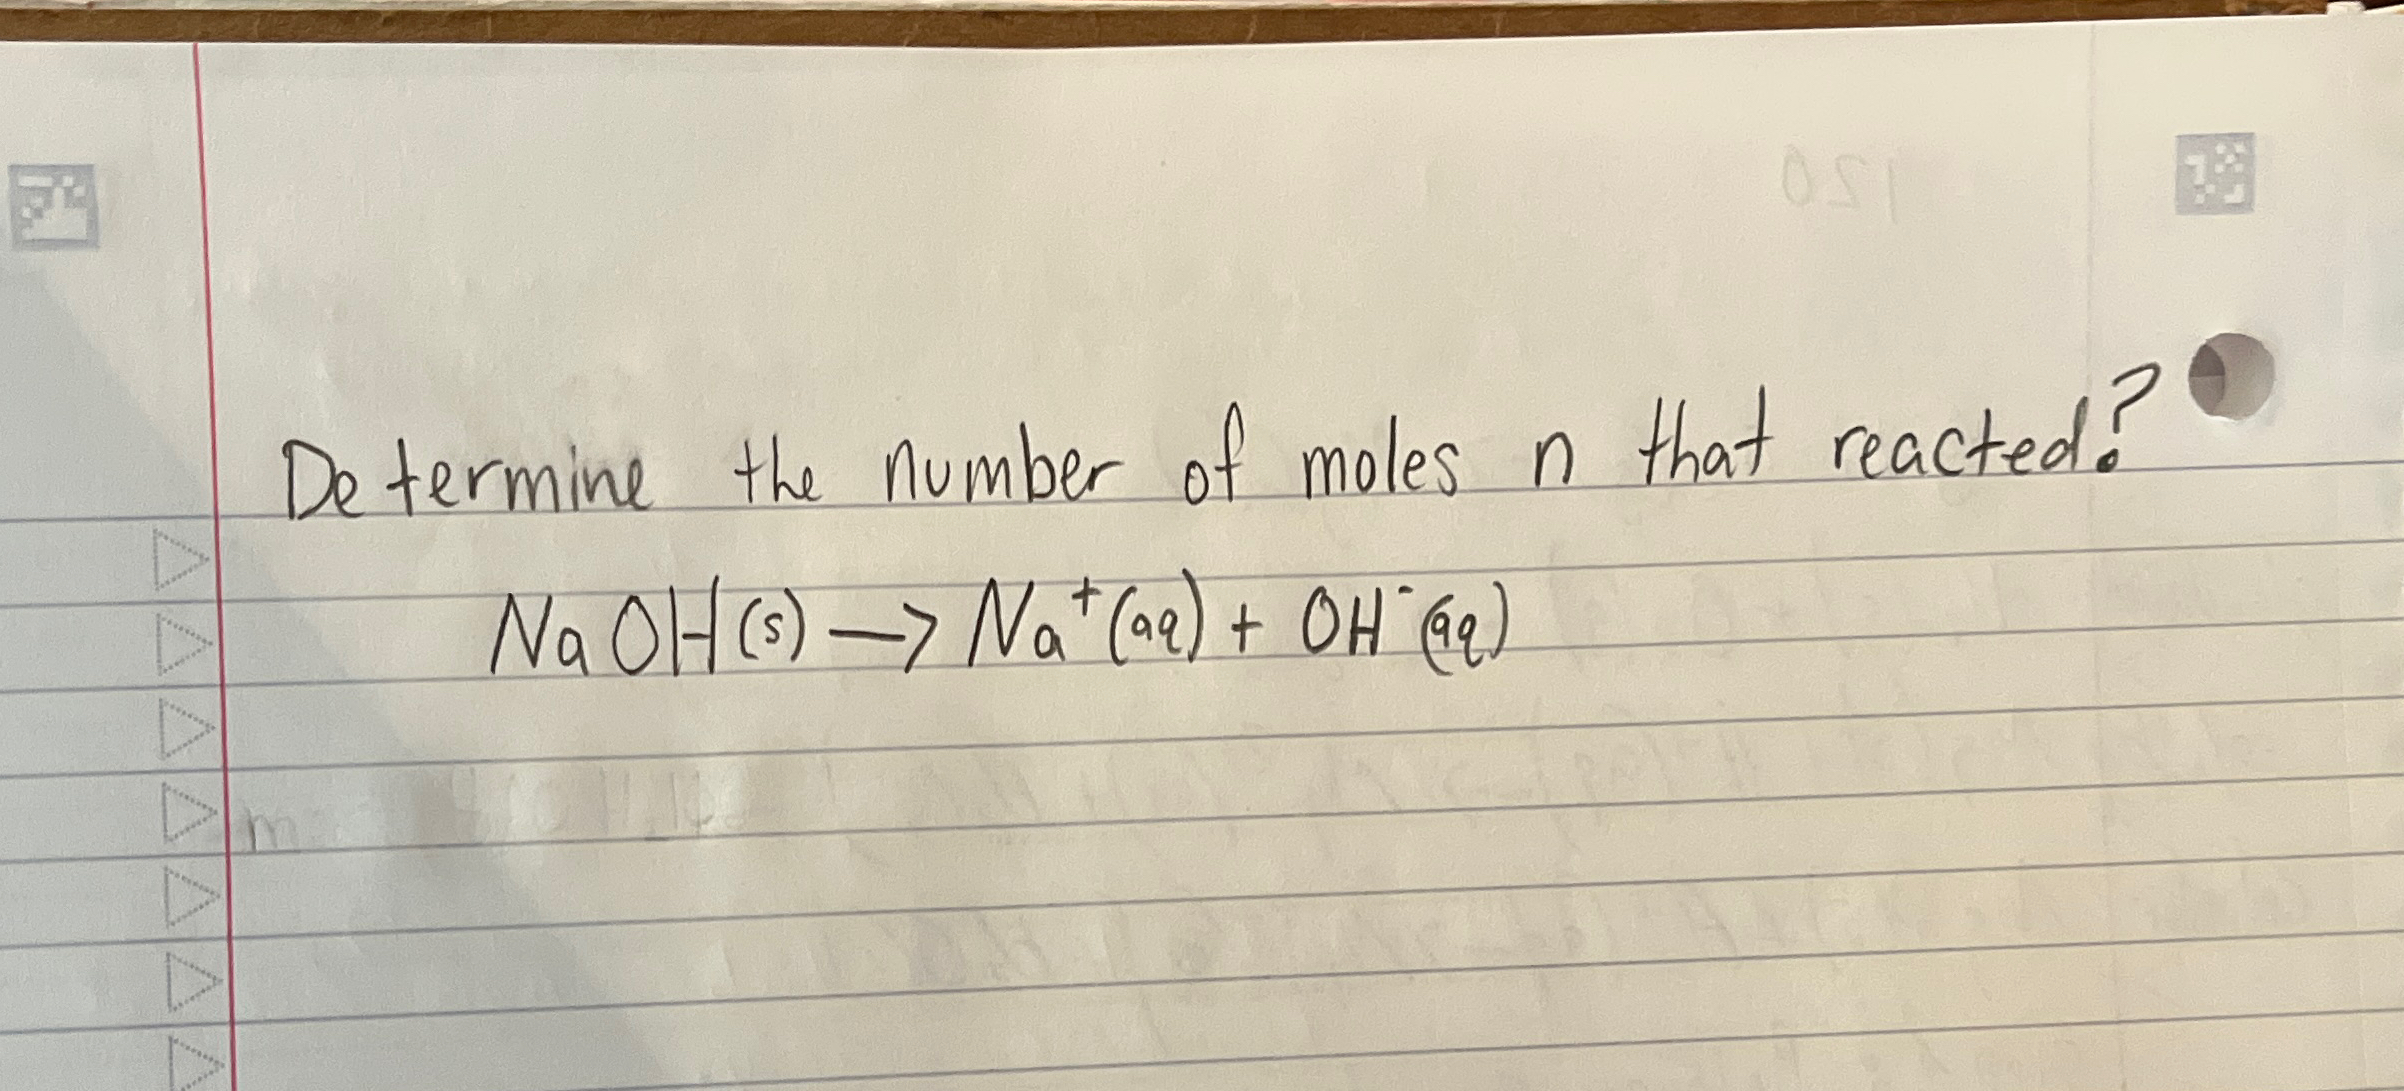 Determine the number of moles n that reacted?
NaOH(s) → Na⁺(aq) + OH⁻(aq)